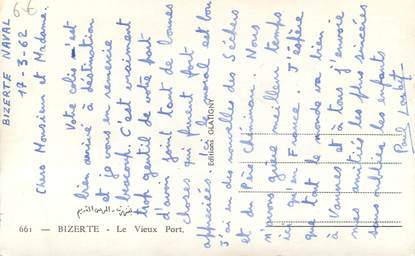 6-€
BIZERTE NAVAL
17-3-62
Chers Monsieur et Madame.
Votre colis s'est
bien arrivé à destination
et je vous en remercie
beaucoup. C'est vraiment
trop gentil de votre part
d'avoir joint tant de bonnes
choses qui furent fort
appréciées. Le moral est bon
J'ai eu des nouvelles des
et du Père Nous
n'avons guère meilleur temps
ici qu'en France. J'espère
que tout le monde va bien
à Vannes et à tous j'envoie
mes amitiés les plus sincères
sans oublier les enfants
Paul
Editions GLATIGNY
بنزرت - المرسى القديم
661 — BIZERTE - Le Vieux Port.